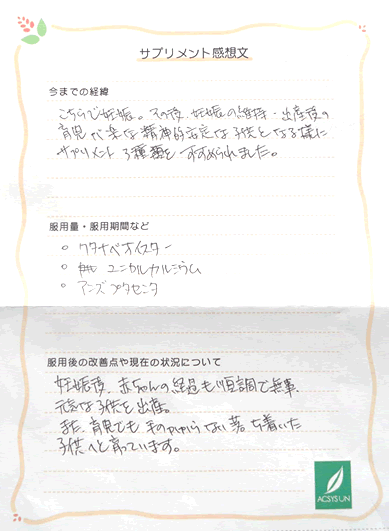 サプリメント感想文
今までの経緯
こちらで妊娠。その後、妊娠の維持・出産後の
育児が楽な精神的安定な子供となる様に
サプリメント3種類をすすめられました。
服用量・服用期間など
○ ワタナベオイスター
○ ユニカルカルシウム
○ アンズプラセンタ
服用後の改善点や現在の状況について
妊娠後、赤ちゃんの経過も順調で無事、
元気な子供を出産。
また、育児でも手のかからない落ち着いた
子供へと育っています。
ACSYSUN